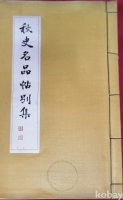 秋史名品帖別集
kobay